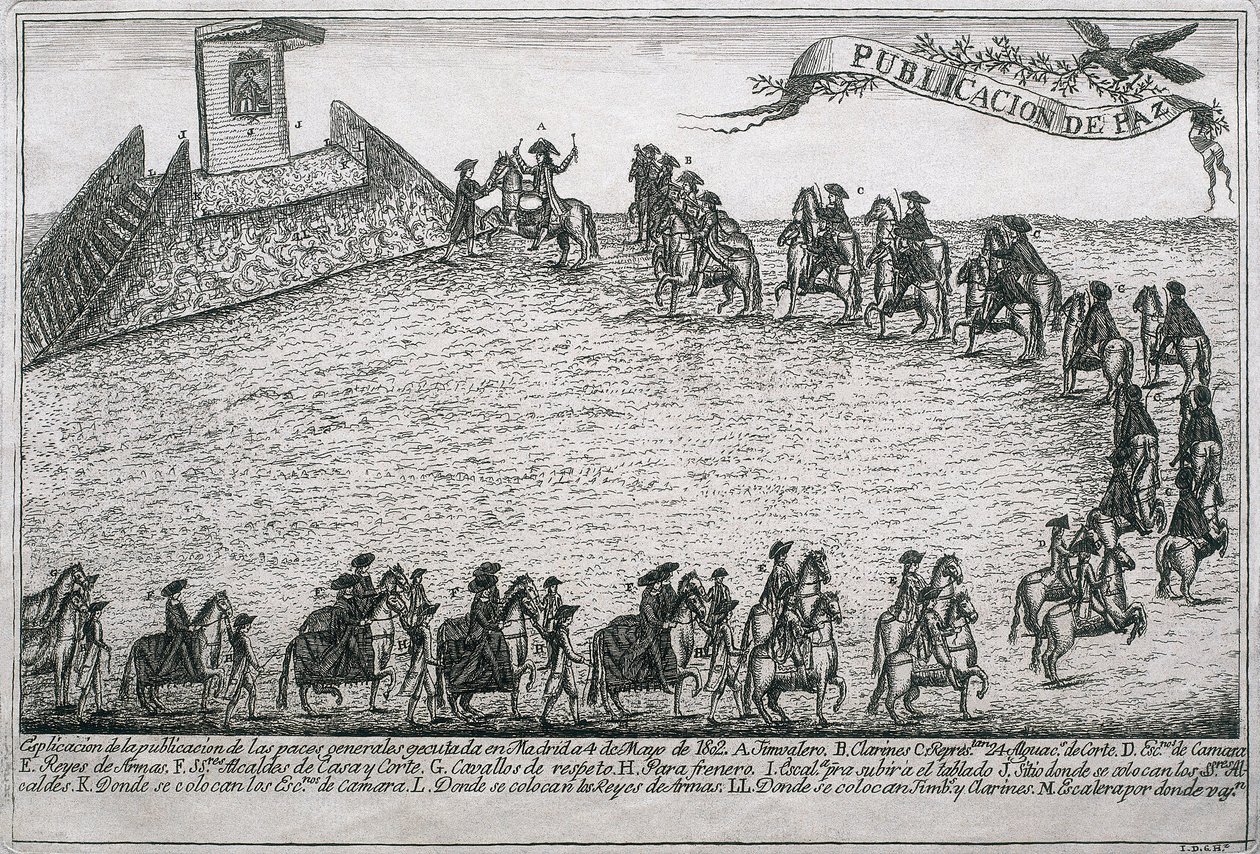 PUBLICACION DE PAZ
J J J
L L L
A
B
C
C
C
C
G G
D
E E
F F F F
G
H H H H
Esplicacion de la publicacion de las paces generales egecutada en Madrid a 4 de Mayo de 1802. A. Timvalero. B. Clarines C. Repres.tan 24 Alguac.s de Corte. D. Esc.nos de Camara
E. Reyes de Armas. F. SS.res Alcaldes de Casa y Corte. G. Cavallos de respeto. H. Para frenero. I. Escal.a pra subir a el tablado J. Sitio donde se colocan los SS.res Al-
caldes. K. Donde se colocan los Esc.nos de Camara. L. Donde se colocan los Reyes de Armas. LL. Donde se colocan Timb.s y Clarines. M. Escalera por donde vaj.n
I. D. G. H.